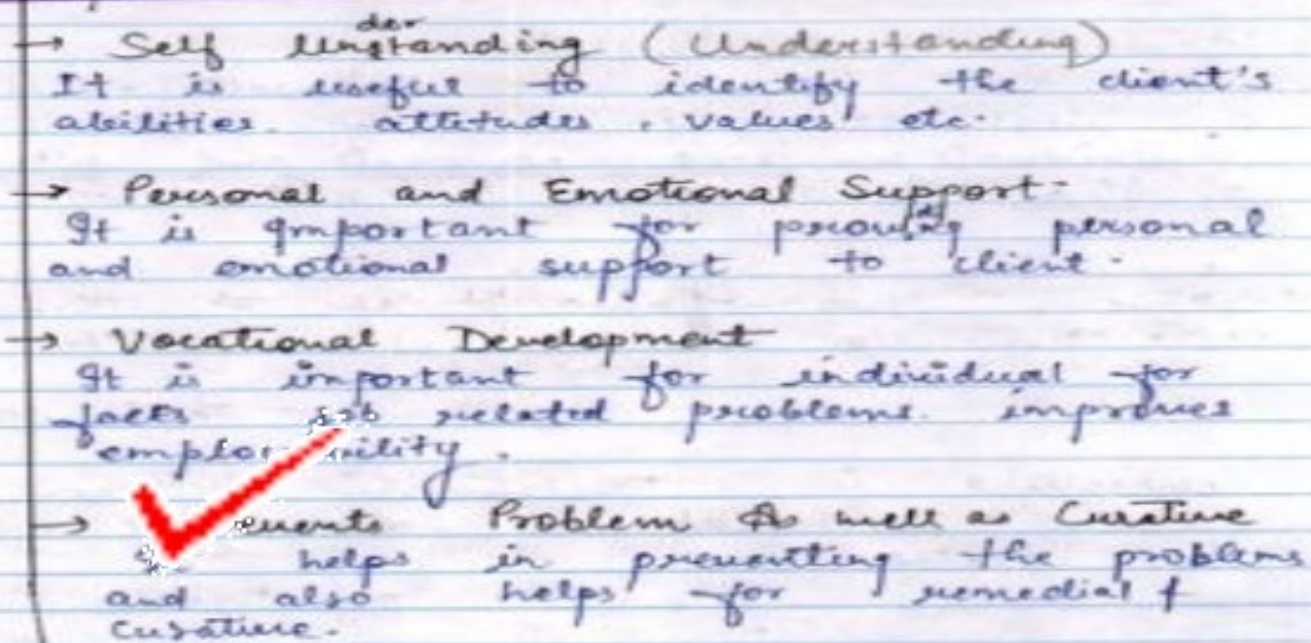 → Self Unstanding (Understanding)
der
It is useful to identify the client's
abilities. attitudes, values etc.
→ Personal and Emotional Support-
It is important for providing personal
and emotional support to client.
→ Vocational Development
It is important for individual for
facts job related problems. improves
employability.
→ Problem As well as Curative
helps in preventing the problems
and also helps for remedial &
curative.